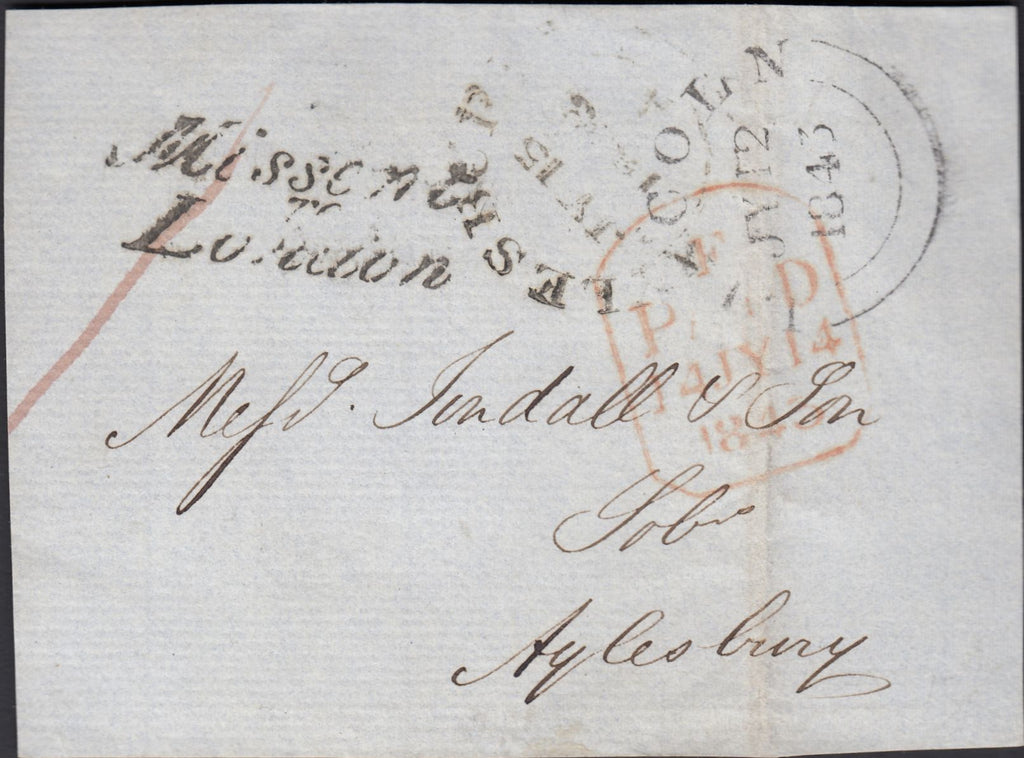 Missent
To
London
LINCOLN
JY 12
1843
AYLESBURY
JY 15
F
PAID
14 JY 14
1843
Messrs. Tindall & Son
Sobrs
Aylesbury